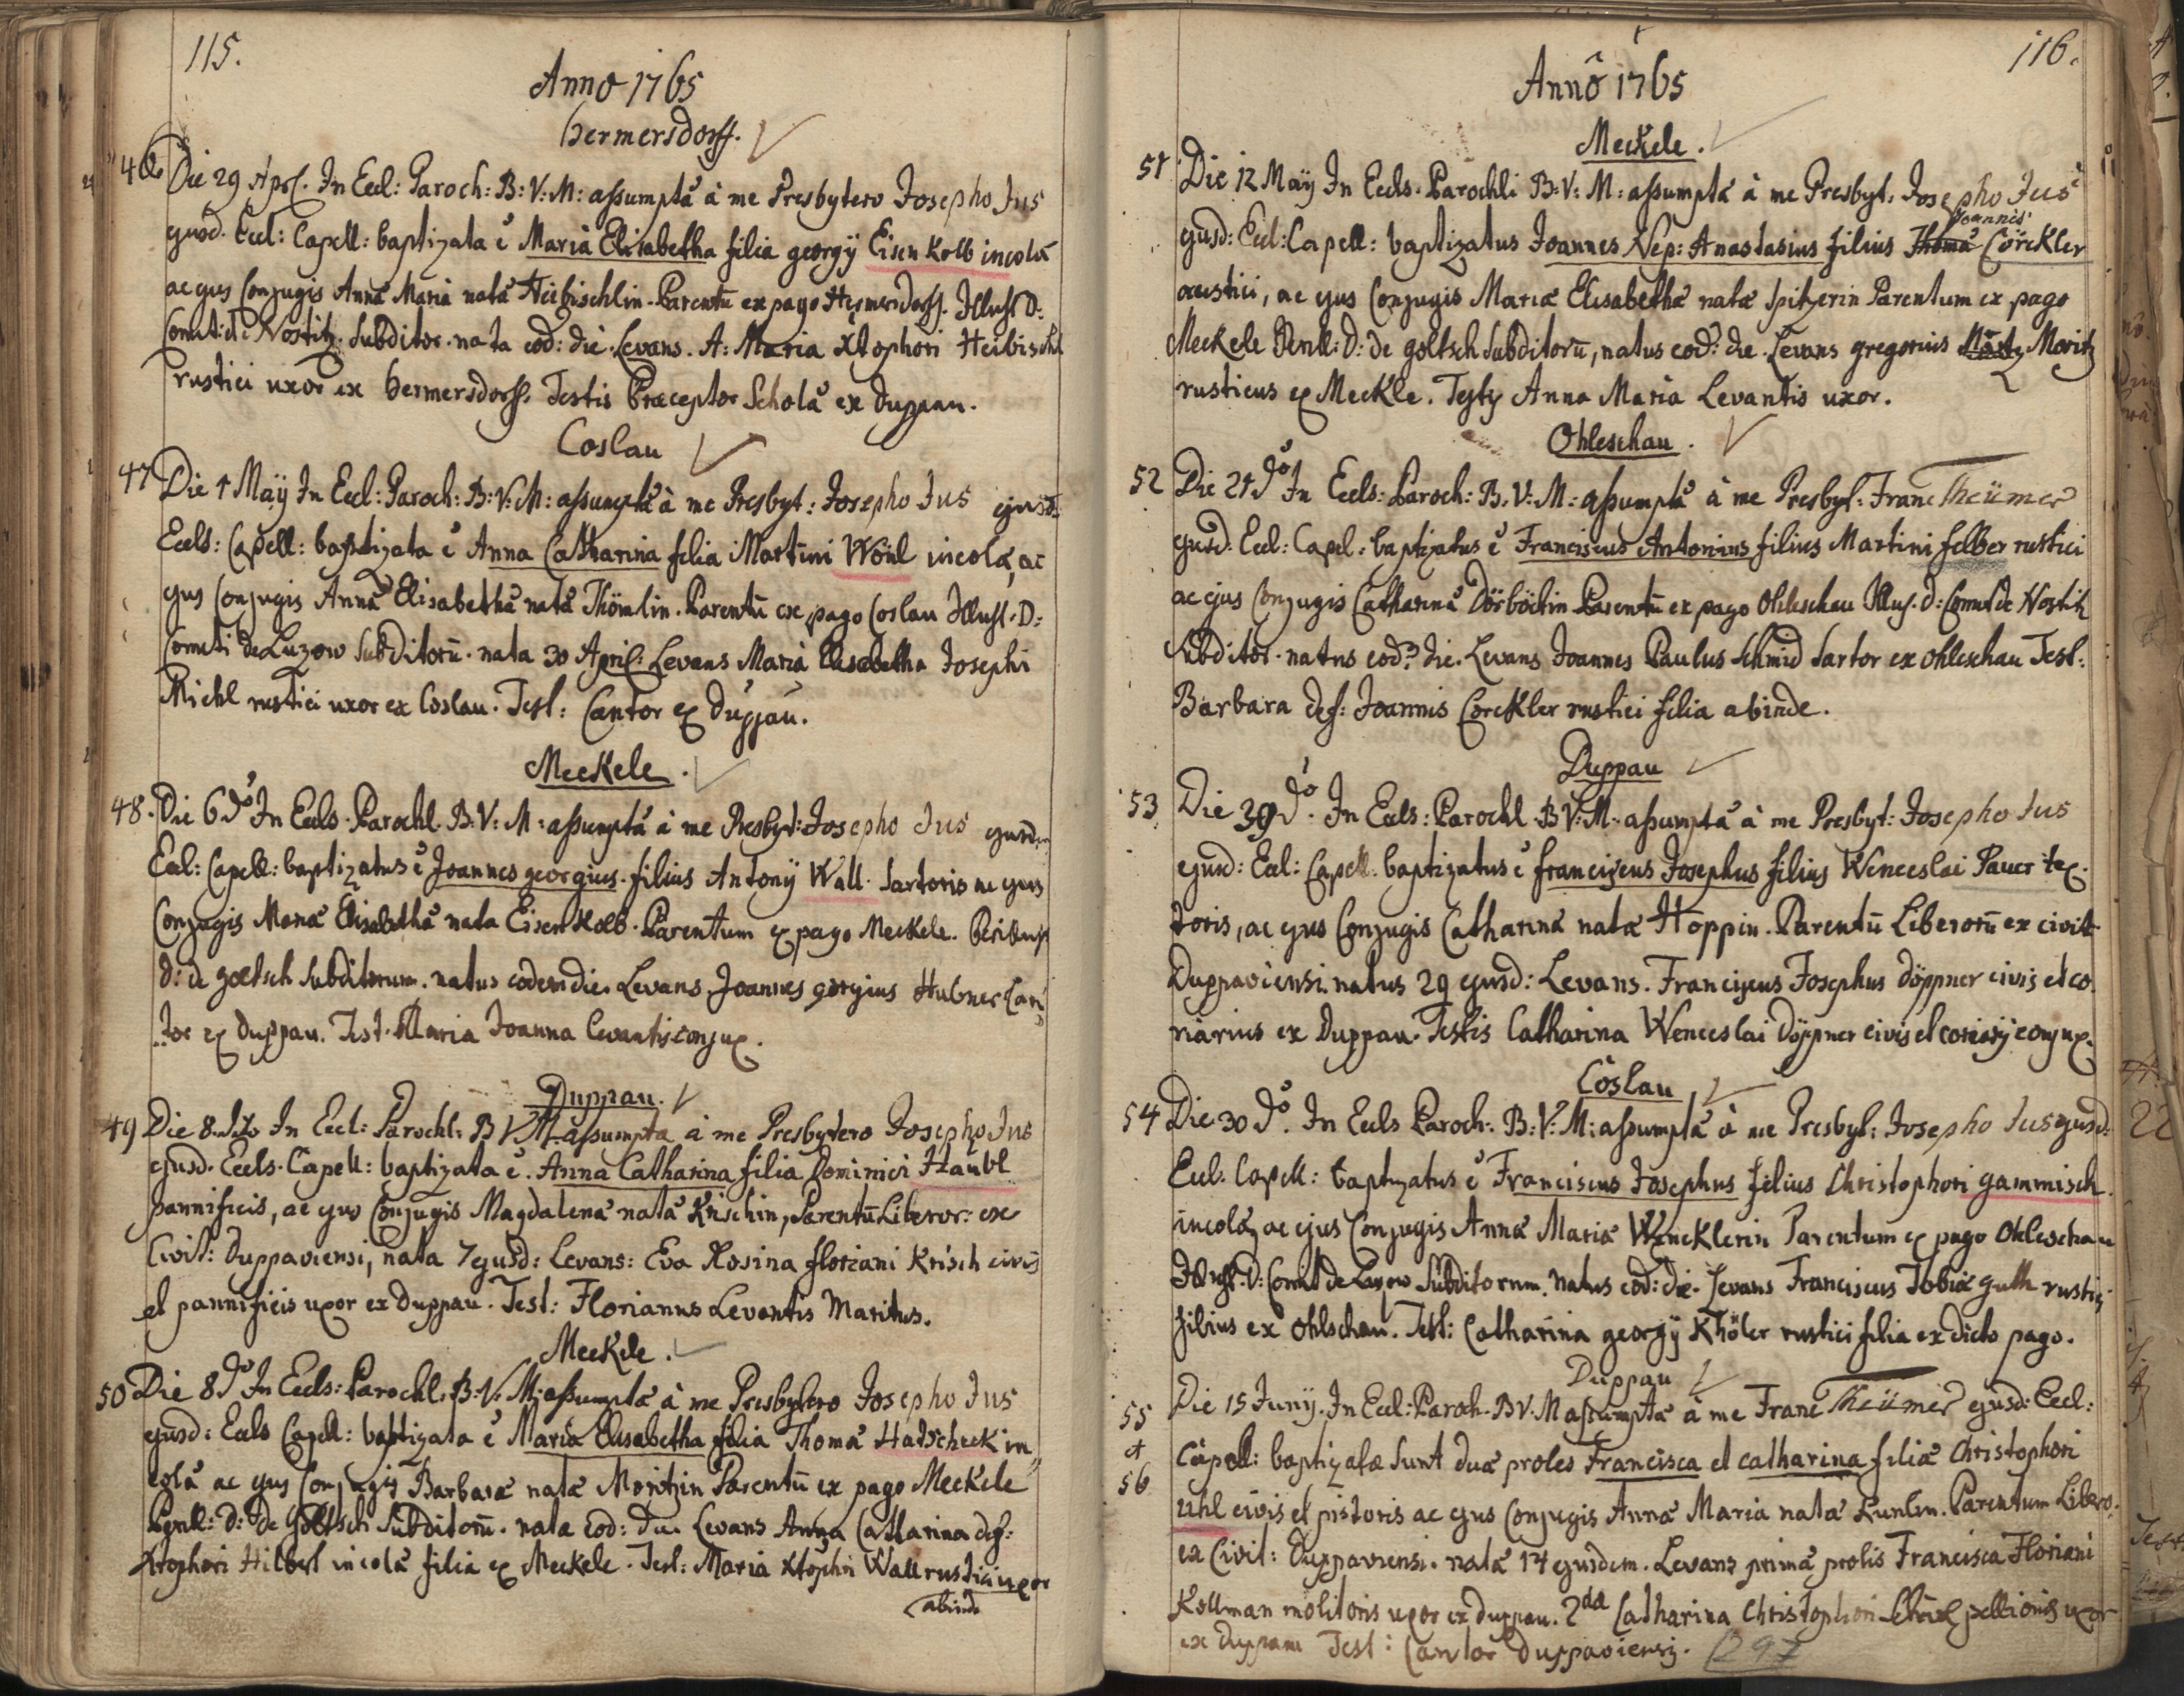 115.
Anno 1765
Hermersdorff.
46 Die 29 Apr. In Eccl: Paroch: B: V: M: assumptâ à me Presbytero Josepho Jus
ejusd. Eccl: Capell: baptizata ê Maria Elisabetha filia georgÿ Eisenkolb incolâ
ac ejus Conjugis Annâ Mariâ natâ Heibischlin. Parentū ex pago Hermersdorff. Illust D:
Comit: de Nostitz. Subditor. nata eod: die. Levans. A: Maria Xtophori Heibischl
rustici uxor ex Hermersdorff. Testis Præceptor Scholâ ex Duppau.
Coslau
47 Die 1 Maÿ In Eccl: Paroch: B: V: M: assumptâ à me Presbyt: Josepho Jus ejusd:
Eccls: Capell: baptizata ê Anna Catharina filia Martini Wönl incolâ, ac
ejus Conjugis Annâ Elisabethâ natâ Thömlin. Parentū ex pago Coslau Illust. D:
Comiti de Luzow Subditorū. nata 30 April: Levans Maria Elisabetha Josephi
Michl rustici uxor ex Coslau. Test: Cantor ex Duppau.
Meckele.
48. Die 6 dº In Eccls. Parochl. B: V: M: assumptâ à me Presbyt: Josepho Jus ejusdm
Eccl: Capell: baptizatus ê Joannes georgius. filius Antonÿ Wall. Sartoris ac ejus
Conjugis Mariâ Elisabethâ nata Eisenkolb. Parentum ex pago Meckele.
D: de goltsch Subditorum. natus eodem die. Levans. Joannes georgius Hubner
tor ex Duppau. Test. Maria Joanna Levantis conjux.
Duppau.
49 Die 8. dto In Eccl: Parochl: B V M. assumpta à me Presbytero Josepho Jus
ejusd. Eccls. Capell: baptizata ê. Anna Catharina filia Dominici Haubl
pannificis, ac ejus Conjugis Magdalenâ natâ Krischin, Parentū Liberor: ex
Civit: Duppaviensi, nata 7 ejusd: Levans: Eva Rosina floriani Krisch civis
et pannificis uxor ex Duppau. Test: Florianus Levantis Maritus.
Meckele.
50 Die 8 dº In Eccls: Parochl. B: V: M: assumptâ à me Presbytero Josepho Jus
ejusd: Eccls Capell: baptizata ê Maria Elisabetha filia Thomâ Hatscheck in„
colâ ac ejus Conjugis Barbarâ natâ Moritzin Parentū ex pago Meckele
D: de Goltsch Subditorū. nata eod: die. Levans Anna Catharina def:
Xtophori Hilbert incolâ filia ex Meckele. Test: Maria Xtophri Wall rustici uxor
abinde
116.
Annô 1765
Meckele.
51 Die 12 Maÿ In Eccls. Parochli B: V: M: assumptâ à me Presbyt: Josepho Jus
Joannis
ejusd: Eccl: Capell: baptizatus Joannes Nep: Anastasius filius Thomâ Cörckler
rustici, ac ejus Conjugis Mariæ Elisabethâ natæ Spitzerin Parentum ex pago
Meckele D: de goltsch Subditorū, natus eod: die. Levans gregorius Moritz
rusticus ex Meckle. Testis Anna Maria Levantis uxor.
Ohleschau.
52 Die 21 dº In Eccls: Paroch: B: V: M: assumptâ à me Presbyt: Franc Theümer
ejusd: Eccl: Capel: baptizatus ê Franciscus Antonius filius Martini Felber rustici
ac ejus Conjugis Catharinâ Dörböctin Parentū ex pago Ohleschau Illus. D: Comit de Nostitz
Subditor. natus eod: die. Levans Joannes Paulus Schmid Sartor ex Ohleschau Test:
Barbara def: Joannis Corckler rustici filia abinde.
Duppau
53 Die 30 dº. In Eccls: Parochl B V: M. assumptâ à me Presbyt: Josepho Jus
ejusd: Eccl: Capell. baptizatus ê franciscus Josephus filius Wenceslai Pauer tex.
toris, ac ejus Conjugis Catharinâ natæ Hoppin. Parentū Liberorū ex civit
Duppaviensi. natus 29 ejusd: Levans. Franciscus Josephus döppner civis et co.
riarius ex Duppau. Testis Catharina Wenceslai Döppner civis et coriarÿ conjux.
Coslau
54 Die. 30 dº. In Eccls Paroch: B: V: M: assumptâ à me Presbyt: Josepho Jus ejusd:
Eccl. Capell: baptizatus ê Franciscus Josephus filius Christophori gammisch
incolâ, ac ejus Conjugis Annâ Mariâ Wencklerin Parentum ex pago Ohleschau
Illust. D: Comit de Luzow Subditorum. Natus eod: die. Levans Franciscus Tobiæ guth rustici
filius ex Ohlschau. Test: Catharina georgÿ Khöler rustici filia ex dicto pago.
Duppau
55 et 56 Die 15 Junÿ. In Eccl: Paroch. B V. M assumptâ à me Franc Theümer ejusd: Eccl:
Capell: baptizatæ sunt duæ proles Francisca et catharina filiæ Christophori
Uhl civis et pistoris ac ejus Conjugis Annâ Maria natâ Kunlin. Parentum Libero.
ex Civit: Duppaviensi. natâ 14 ejusdem. Levans primâ prolis Francisca Floriani
Kollman molitoris uxor ex duppau. 2dæ Catharina Christophori pellionis uxor
ex Duppau Test: Cantor Duppaviensis. 297